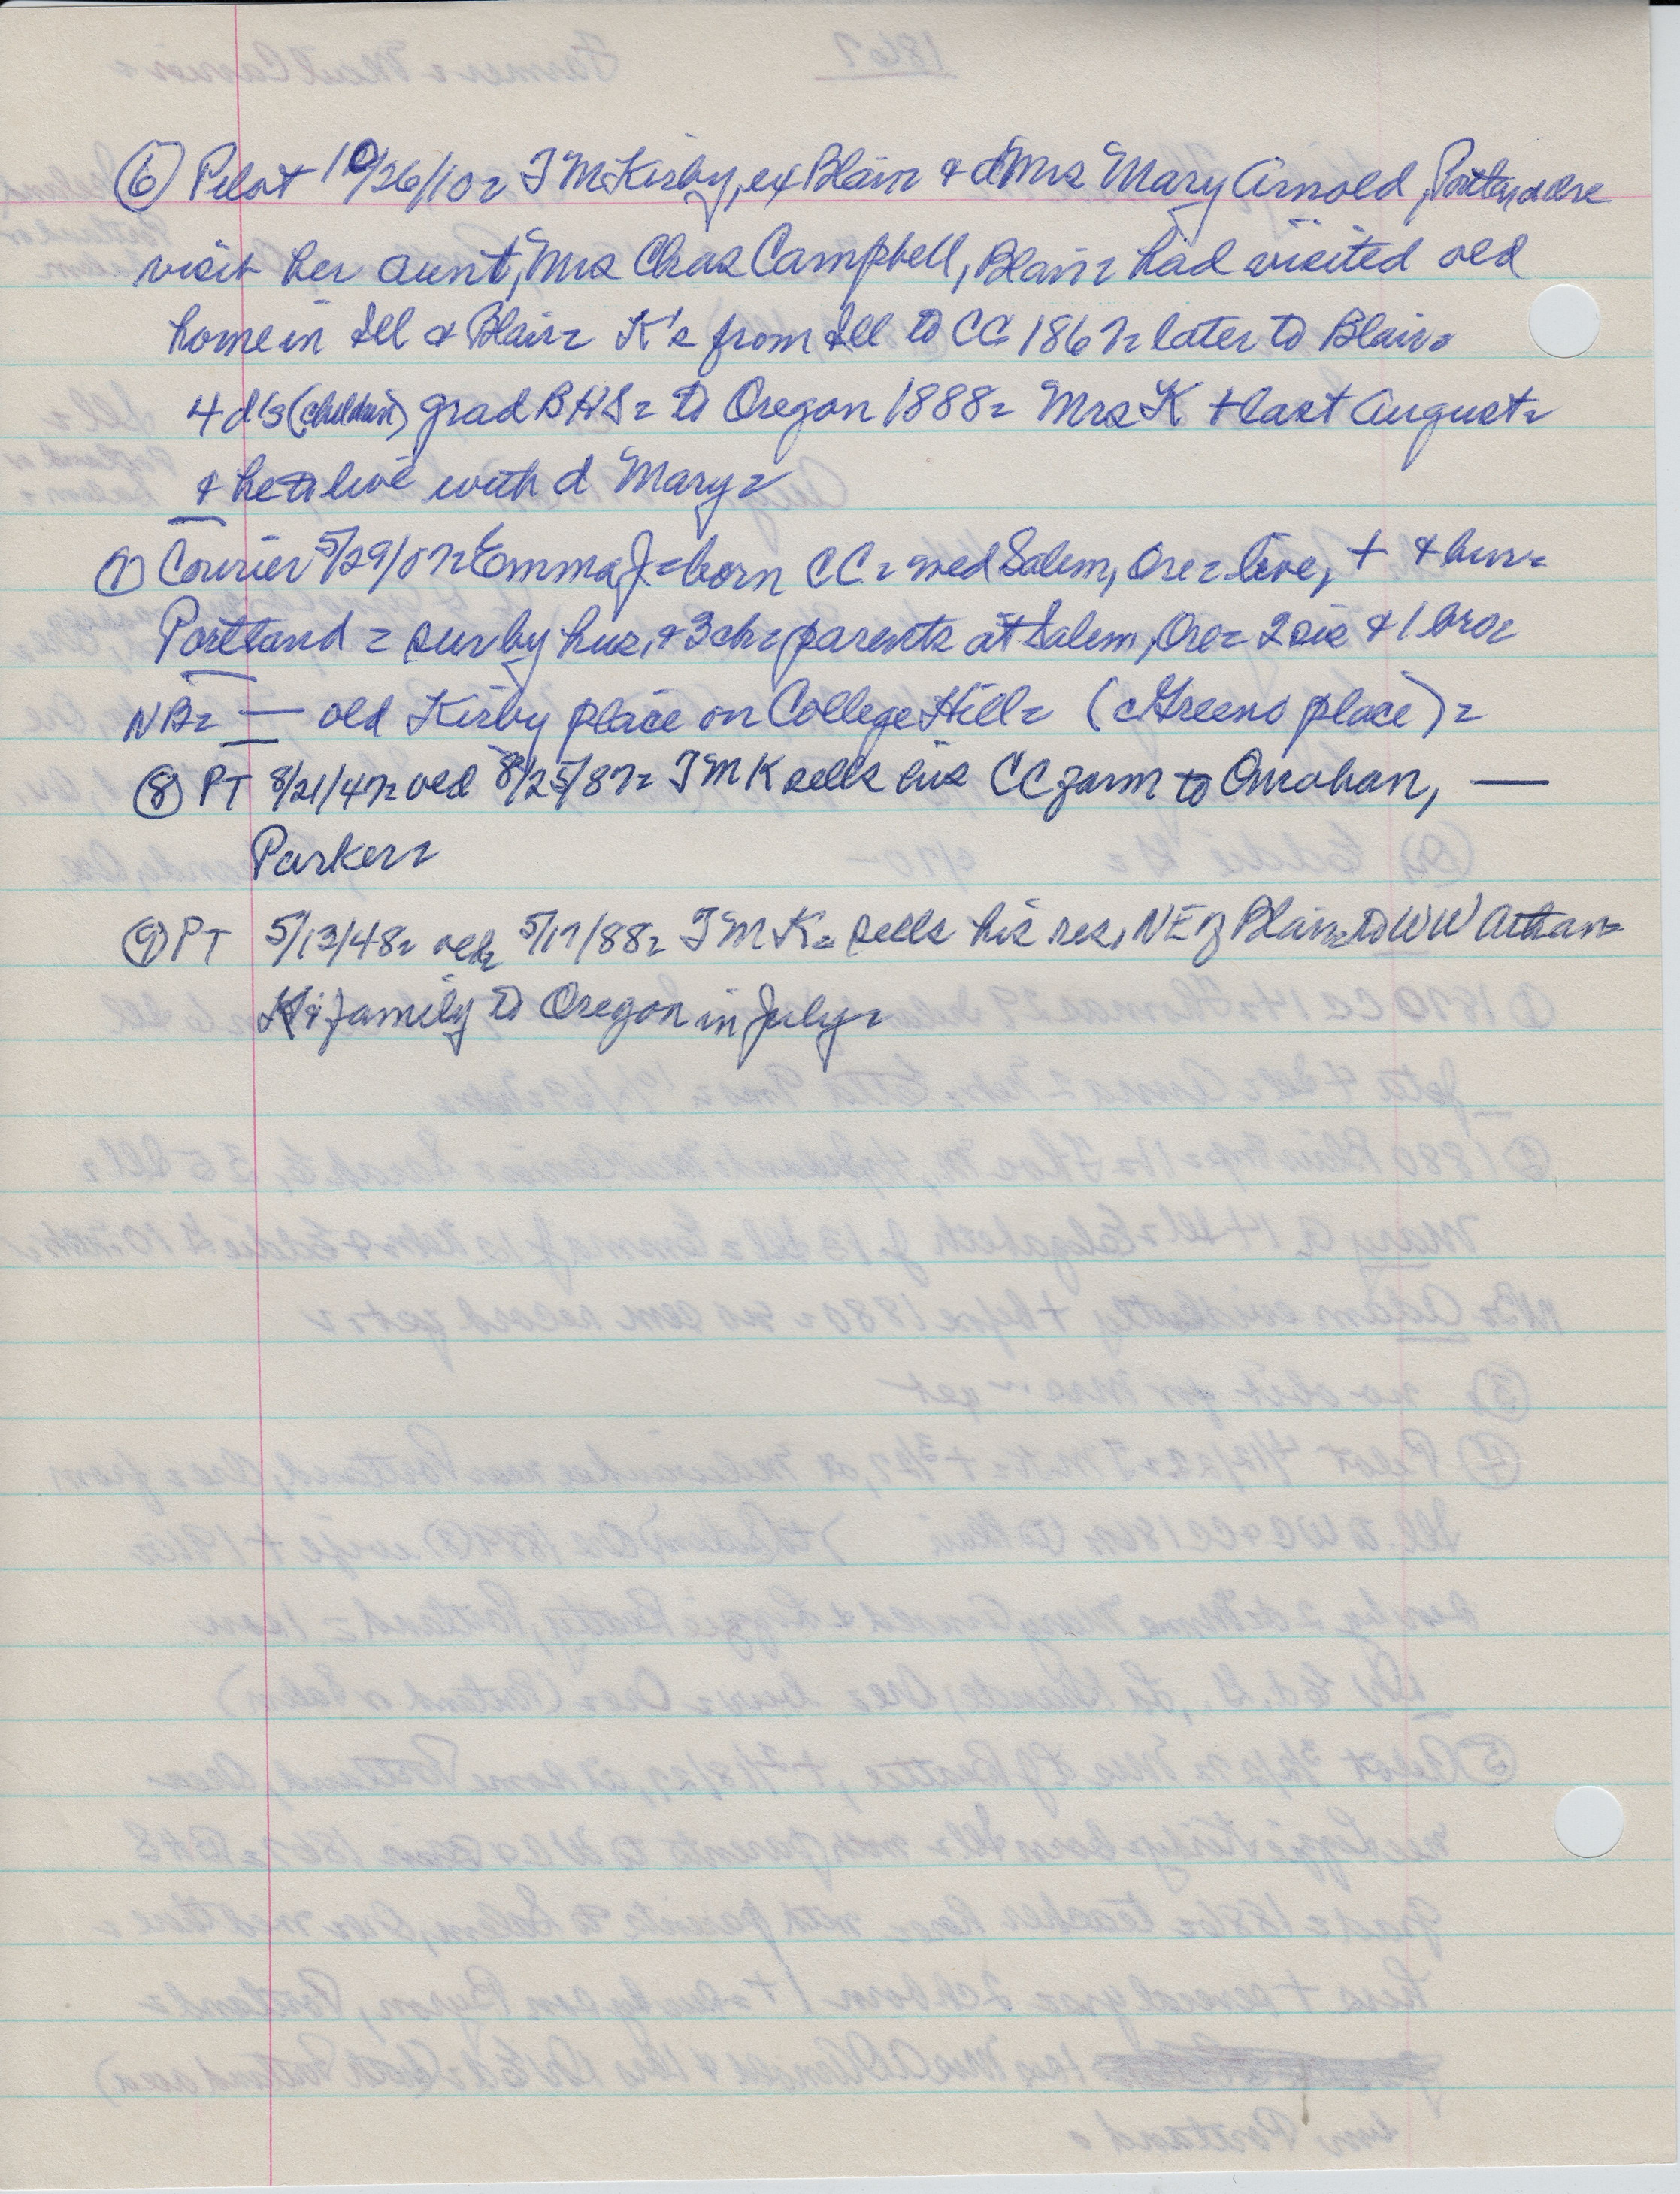 ⑥ Pilot 10/26/10= T M Kirby, ex Blair & d Mrs Mary Arnold, Portland Ore
visit her aunt, Mrs Chas Campbell, Blair= had visited old
home in Ill & Blair= K's from Ill to CC 1867= later to Blair=
4 d's (children) grad BHS= to Oregon 1888= Mrs K + last August=
& he to live with d Mary=
⑦ Courier 5/29/07= Emma J= born CC= med Salem, Ore= live, + & bur=
Portland= sur by hus, & 3 ch= parents at Salem, Ore= 2 sis & 1 bro=
NB= — old Kirby place on College Hill= (cGreens place)=
⑧ PT 8/21/47= old 8/25/87= T M K sells his CC farm to Omahan, —
Parker=
⑨ PT 5/13/48= old= 5/17/88= T M K= sells his res, NE of Blair= to W W
K & family to Oregon in July=